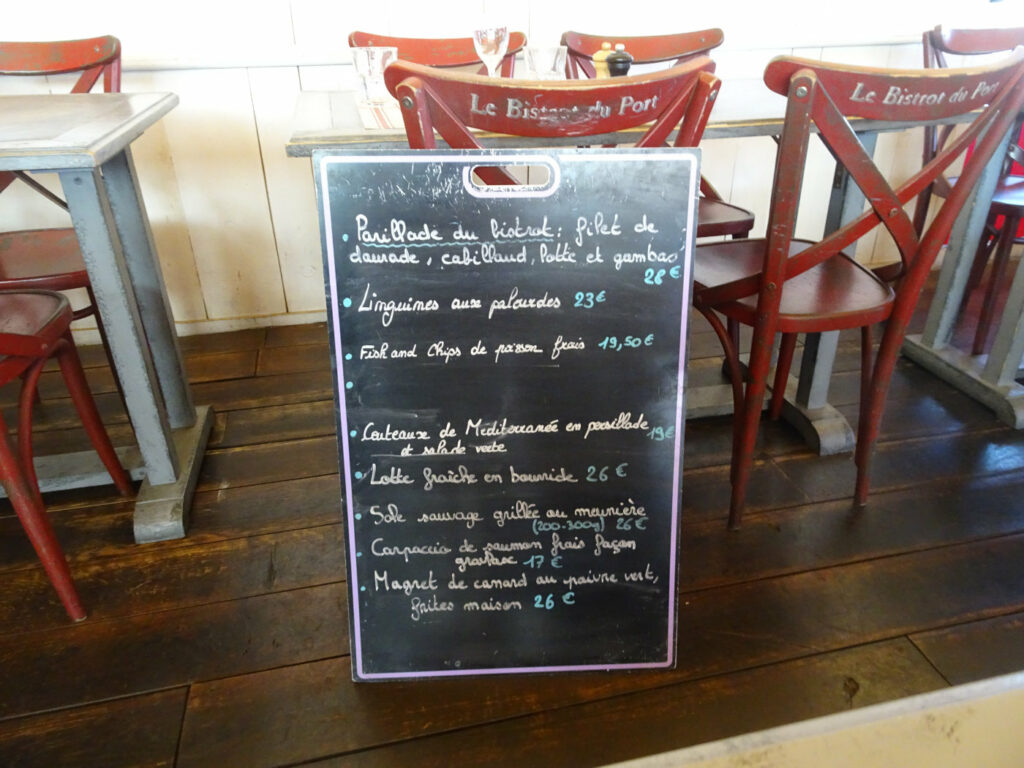 Le Bistrot du Port
Le Bistrot du Port
Parillade du bistrot : filet de
daurade, cabillaud, lotte et gambas
28€
Linguines aux palourdes 23€
Fish and Chips de poisson frais 19,50€
Couteaux de Méditerranée en persillade 19€
et salade verte
Lotte fraîche en bourride 26€
Sole sauvage grillée ou meunière
(200-300g) 26€
Carpaccio de saumon frais façon
gravlaxe 17€
Magret de canard au poivre vert,
frites maison 26€